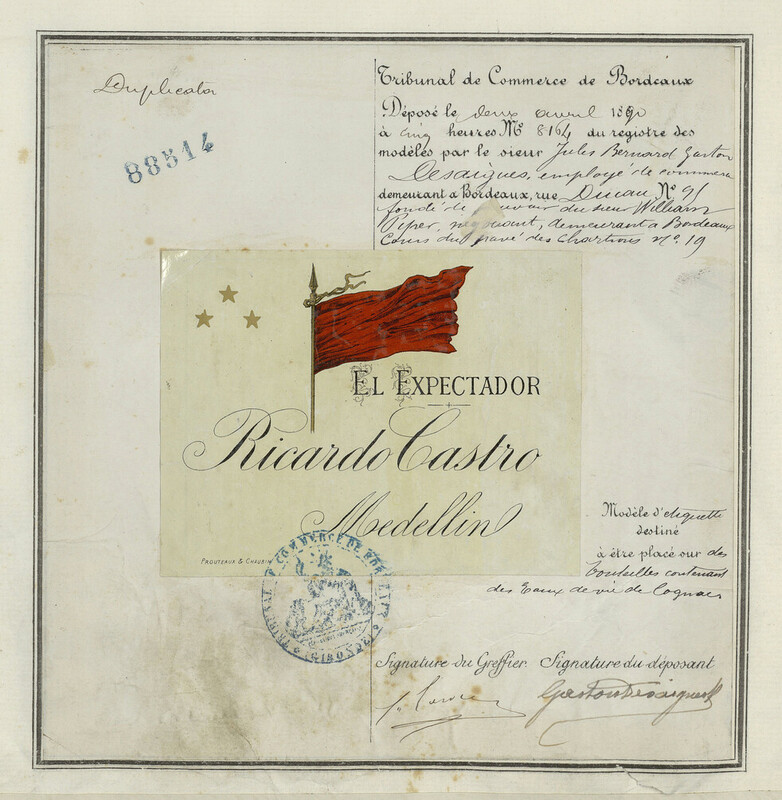 Duplicata
88514
Tribunal de Commerce de Bordeaux
Déposé le deux avril 1890
à cinq heures No 8164 du registre des
modèles par le sieur Jules Bernard Gaston
Desaigues, employé de commerce
demeurant a Bordeaux, rue Ducau No 91
fondé de pouvoir du sieur William
Piper, négociant, demeurant à Bordeaux
Cours du pavé des Chartrons no. 19
EL EXPECTADOR
Ricardo Castro
Medellin
PROUTEAUX &
Modèle d'étiquette
destiné
à être placé sur des
bouteilles contenant
des Eaux de vie de Cognac
TRIBUNAL DE COMMERCE DE BORDEAUX
GIRONDE
Signature du Greffier Signature du déposant